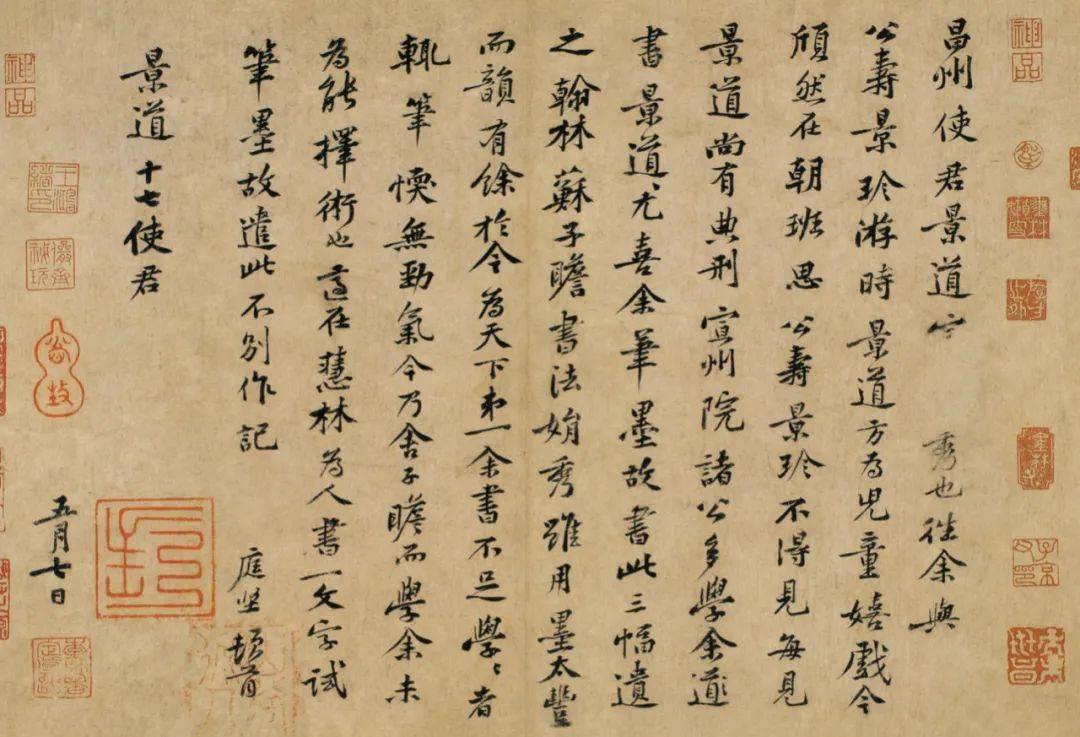 昌州使君景道宗秀也往余與
公壽景珍游時景道方為兒童嬉戲今
頎然在朝班思公壽景珍不得見每見
景道尚有典刑宣州院諸公多學余道
書景道尤喜余筆墨故書此三幅遺
之翰林蘇子瞻書法娟秀雖用墨太豐
而韻有餘於今為天下第一余書不足學〻者
輒筆愞無勁氣今乃舍子瞻而學余未
為能擇術也適在慧林為人書一文字試
筆墨故遣此不別作記庭堅頓首
景道十七使君
五月七日
神品
子京父印
神品
王鴻緒印
儼齋秘玩